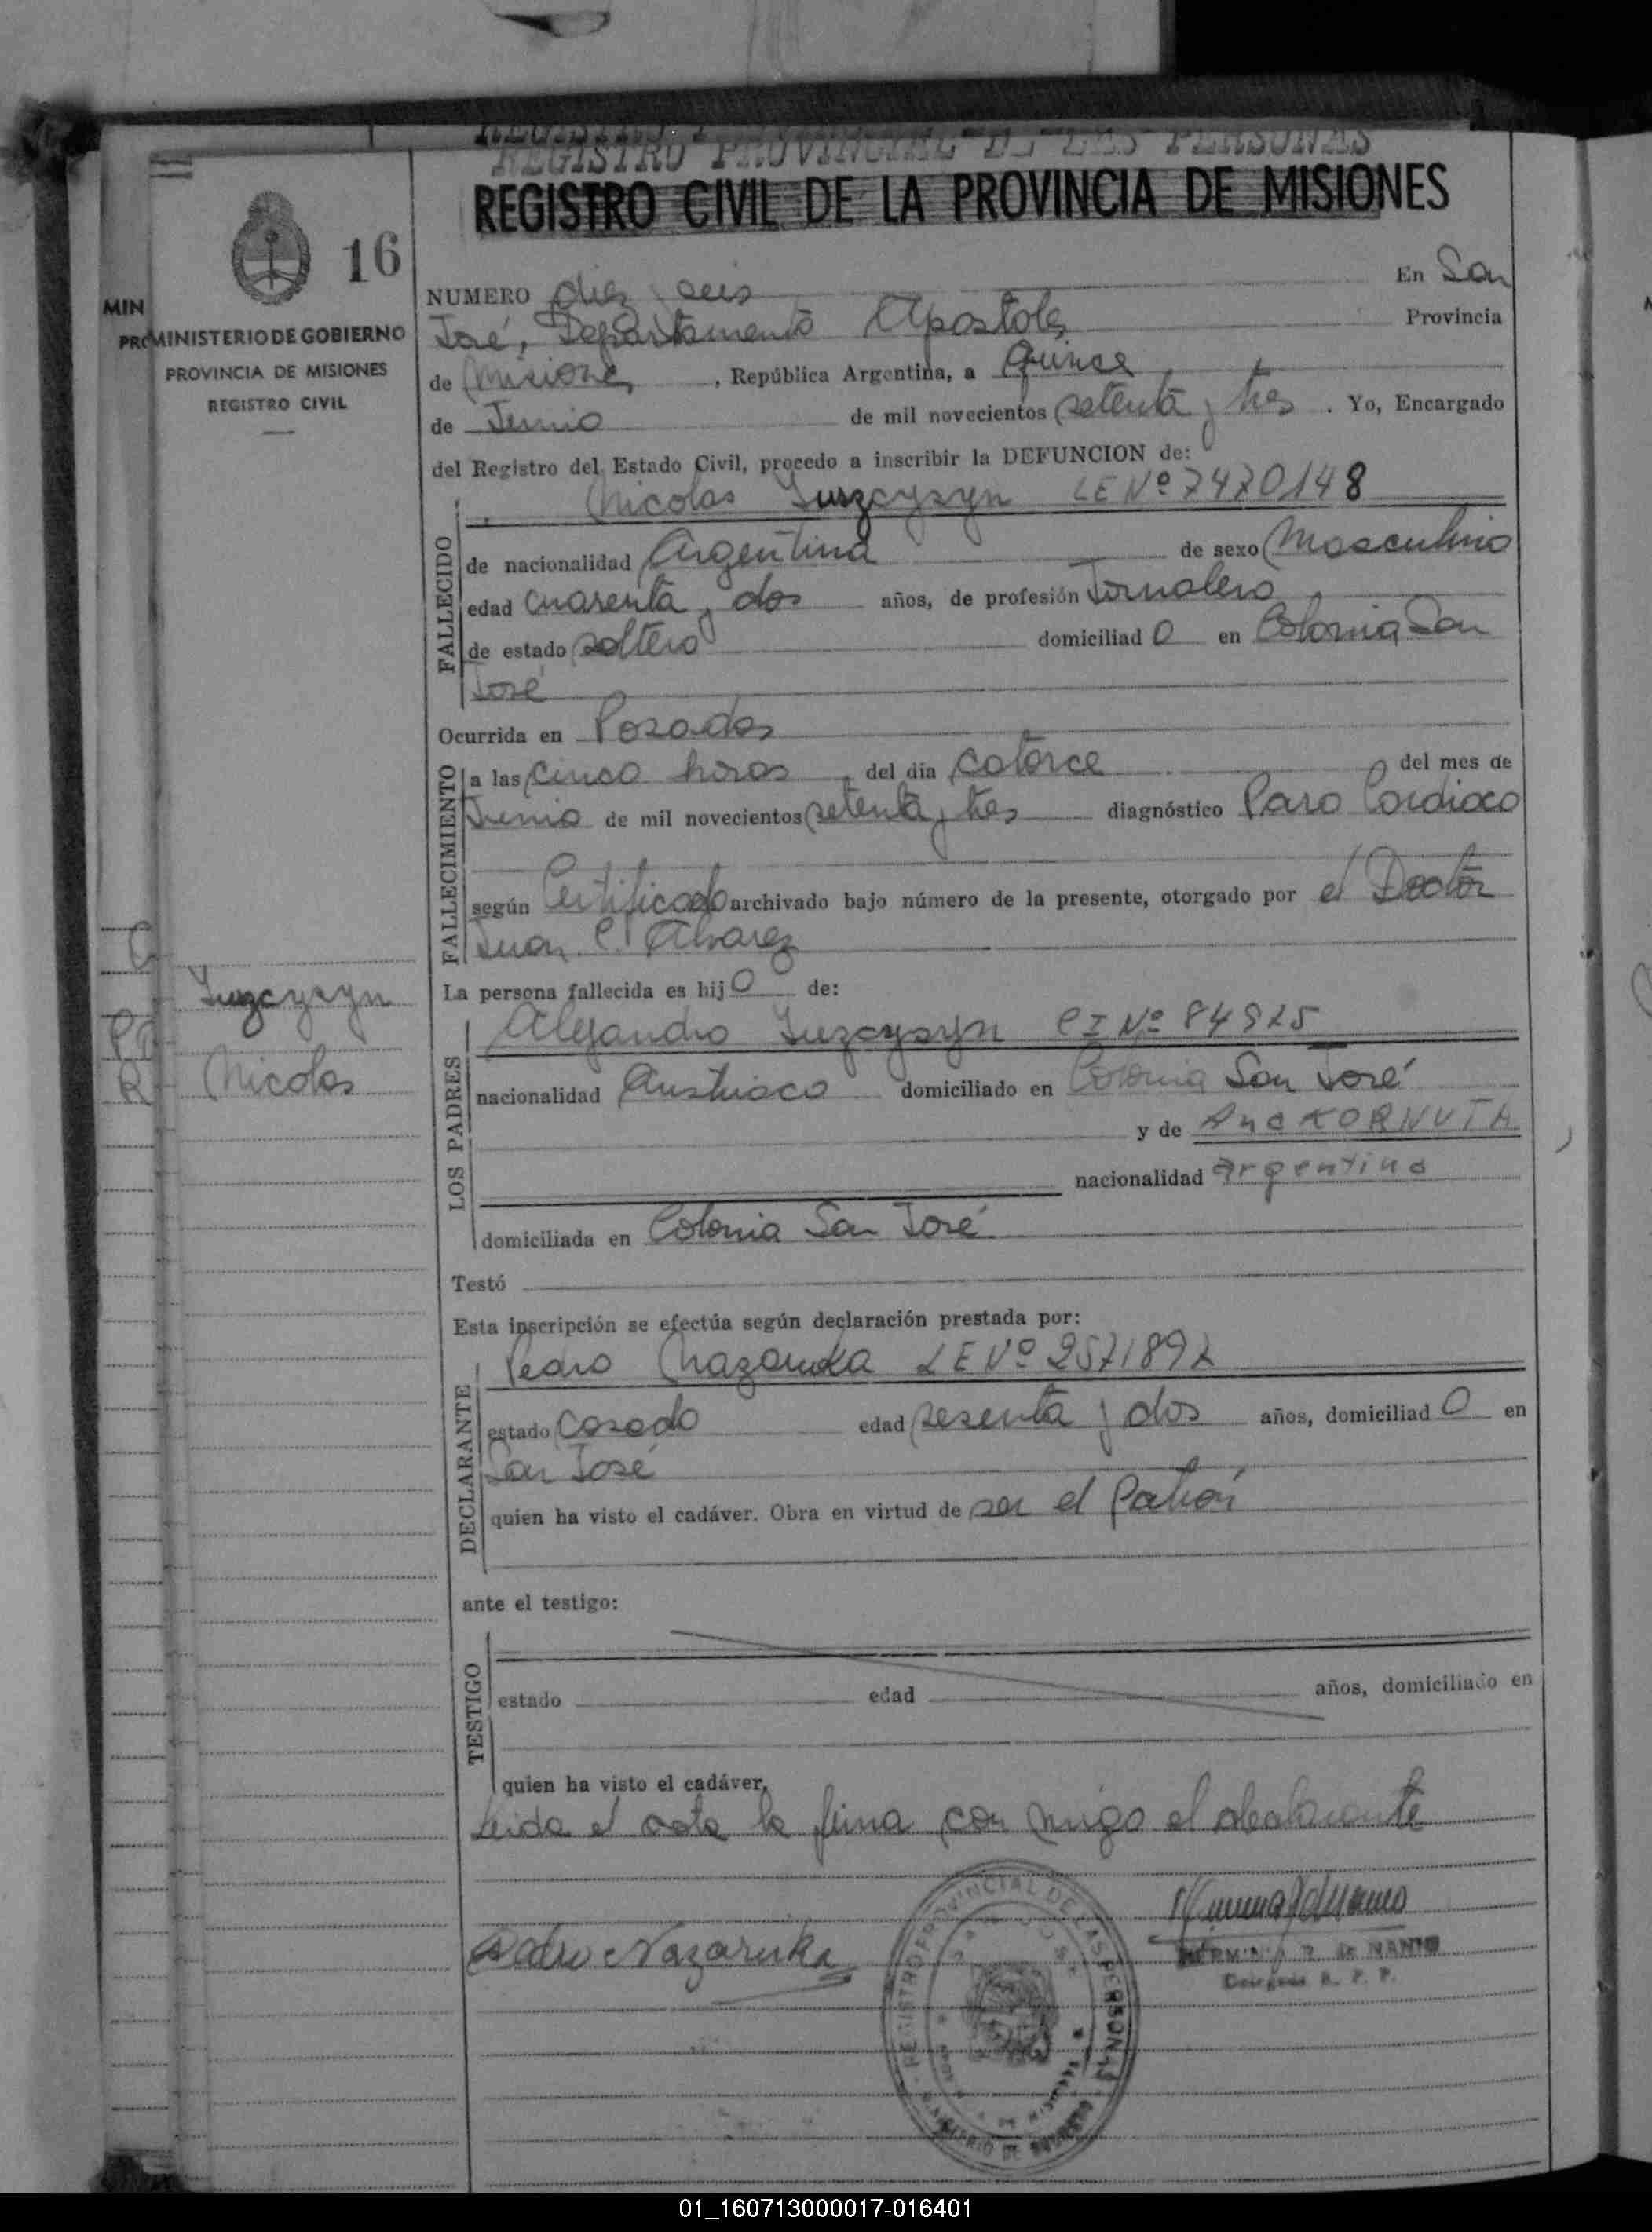 REGISTRO PROVINCIAL DE LAS PERSONAS
REGISTRO CIVIL DE LA PROVINCIA DE MISIONES
16
MIN
PROMINISTERIO DE GOBIERNO
PROVINCIA DE MISIONES
REGISTRO CIVIL
NUMERO diez y seis En San
José, Departamento Apostoles Provincia
de Misiones, República Argentina, a Quince
de Junio de mil novecientos setenta y tres. Yo, Encargado
del Registro del Estado Civil, procedo a inscribir la DEFUNCION de:
Nicolas Juszcyszyn LE Nº 7470148
FALLECIDO
de nacionalidad Argentina de sexo Masculino
edad cuarenta y dos años, de profesión Jornalero
de estado soltero domiciliado en Colonia San
José
Ocurrida en Posadas
FALLECIMIENTO
a las cinco horas del día catorce del mes de
Junio de mil novecientos setenta y tres diagnóstico Paro Cardiaco
según Certificado archivado bajo número de la presente, otorgado por el Doctor
Juan C. Alvarez
Nicolas
La persona fallecida es hijo de:
LOS PADRES
Alejandro CI Nº 84925
nacionalidad Austriaco domiciliado en Colonia San José
y de Ana KORNUTA
nacionalidad argentina
domiciliada en Colonia San José
Testó
Esta inscripción se efectúa según declaración prestada por:
DECLARANTE
Pedro Nazaruka LE Nº 2571892
estado Casado edad sesenta y dos años, domiciliado en
San José
quien ha visto el cadáver. Obra en virtud de ser el Patrón
ante el testigo:
TESTIGO
estado edad años, domiciliado en
quien ha visto el cadáver,
Leida el acta la firma con migo el declarante
Pedro Nazaruka
REGISTRO PROVINCIAL DE LAS PERSONAS
01_160713000017-016401